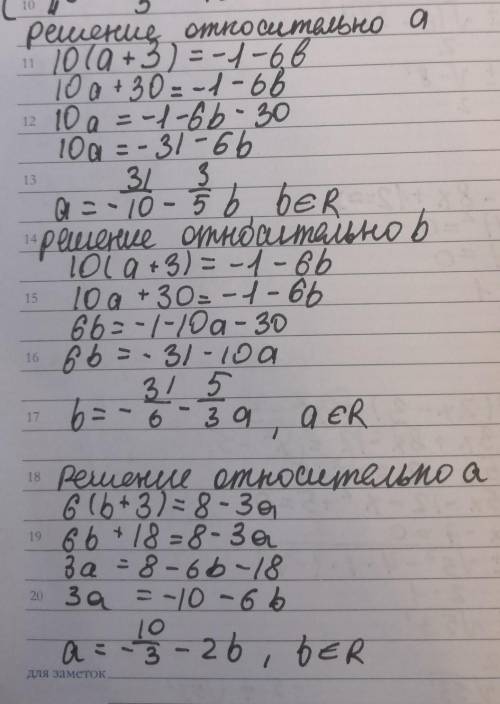 10
решение относительно a
11 10(a+3)=-1-6b
10a+30=-1-6b
12 10a=-1-6b-30
10a=-31-6b
13 a=-31/10-3/5b b∈R
14 решение относительно b
10(a+3)=-1-6b
15 10a+30=-1-6b
6b=-1-10a-30
16 6b=-31-10a
17 b=-31/6-5/3a, a∈R
18 решение относительно a
6(b+3)=8-3a
19 6b+18=8-3a
3a=8-6b-18
20 3a=-10-6b
a=-10/3-2b, b∈R
для заметок